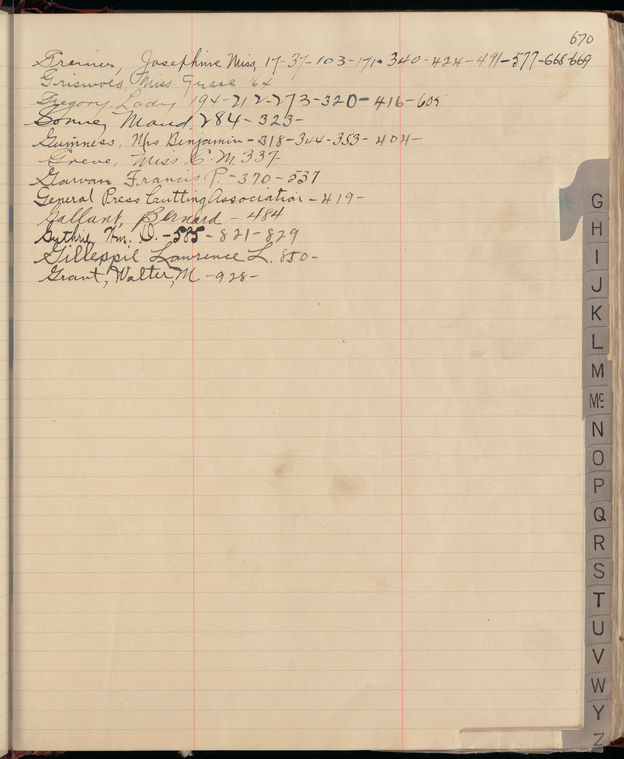 670
Greiner, Josephine Miss, 17-37-103-171-340-424-491-577-668-669
Griswold Miss Grace 64
Gregory Lady 194-212-273-320-416-605
Gonne, Maud, 284-323-
Guinness, Mrs Benjamin-318-344-353-404-
Greve, Miss C. M. 337-
Garvan Francis P.-370-537
General Press Cutting Association-419-
Gallant, Bernard-484
Guthrie, Wm. D.-585-821-829
Gillespie Lawrence L. 850-
Grant, Walter, M-928-
G
H
I
J
K
L
M
Mc
N
O
P
Q
R
S
T
U
V
W
Y
Z